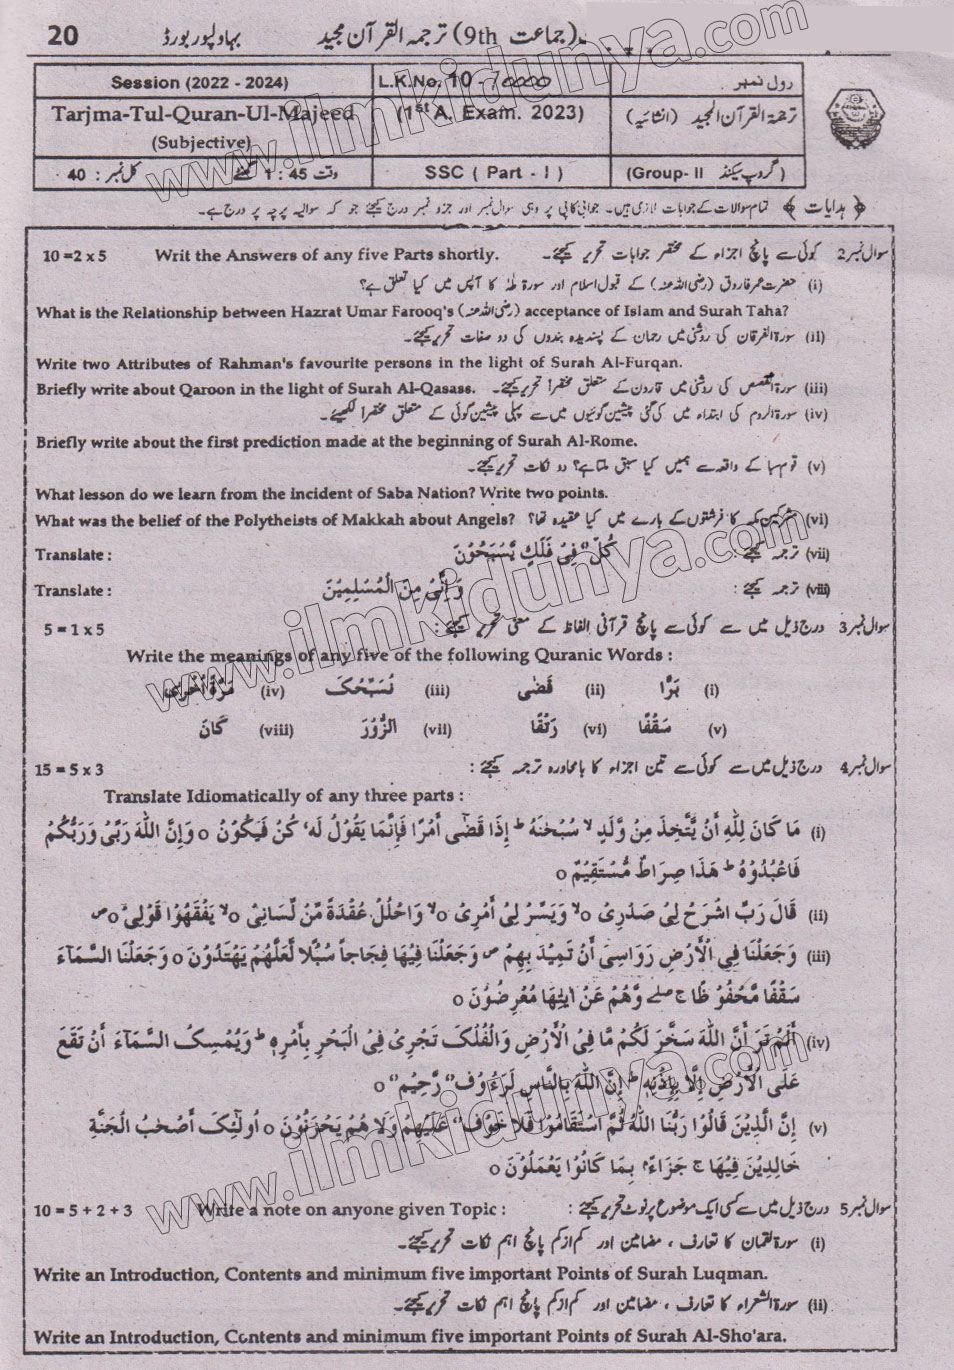 20 بہاولپور بورڈ (جماعت 9th) ترجمۃ القرآن مجید
Session (2022 - 2024) L.K.No. 10 - رول نمبر
Tarjma-Tul-Quran-Ul-Majeed (1st A. Exam. 2023) ترجمۃ القرآن المجید (انشائیہ)
(Subjective)
کل نمبر : 40 وقت 1 : 45 گھنٹے SSC ( Part - I ) (Group- II گروپ سیکنڈ)
﴿ ہدایات ﴾ تمام سوالات کے جوابات لازمی ہیں۔ جوابی کاپی پر وہی سوال نمبر اور جزو نمبر درج کیجئے جو کہ سوالیہ پرچہ پر درج ہے۔
10 =2 x 5 Writ the Answers of any five Parts shortly. سوال نمبر 2 کوئی سے پانچ اجزاء کے مختصر جوابات تحریر کیجئے۔
(i) حضرت عمر فاروق (رضی اللہ عنہ) کے قبول اسلام اور سورۃ طٰہٰ کا آپس میں کیا تعلق ہے؟
What is the Relationship between Hazrat Umar Farooq's (رضی اللہ عنہ) acceptance of Islam and Surah Taha?
(ii) سورۃ الفرقان کی روشنی میں رحمان کے پسندیدہ بندوں کی دو صفات تحریر کیجئے۔
Write two Attributes of Rahman's favourite persons in the light of Surah Al-Furqan.
Briefly write about Qaroon in the light of Surah Al-Qasass. (iii) سورۃ القصص کی روشنی میں قارون کے متعلق مختصراً تحریر کیجئے۔
(iv) سورۃ الروم کی ابتداء میں کی گئی پیشین گوئیوں میں سے پہلی پیشین گوئی کے متعلق مختصراً لکھیئے۔
Briefly write about the first prediction made at the beginning of Surah Al-Rome.
(v) قوم سبا کے واقعہ سے ہمیں کیا سبق ملتا ہے؟ دو نکات تحریر کیجئے۔
What lesson do we learn from the incident of Saba Nation? Write two points.
What was the belief of the Polytheists of Makkah about Angels? (vi) مشرکین مکہ کا فرشتوں کے بارے میں کیا عقیدہ تھا؟
Translate : كُلٌّ فِىْ فَلَكٍ يَّسْبَحُوْنَ (vii) ترجمہ کیجئے :
Translate : وَاِنِّىْ مِنَ الْمُسْلِمِيْنَ (viii) ترجمہ کیجئے :
5 = 1 x 5 سوال نمبر 3 درج ذیل میں سے کوئی سے پانچ قرآنی الفاظ کے معنی تحریر کیجئے :
Write the meanings of any five of the following Quranic Words :
(i) بَرًّا (ii) قَضٰى (iii) نُسَبِّحُكَ (iv) مَرَّةً اُخْرٰى
(v) سَقْفًا (vi) رَتْقًا (vii) اَلزُّوْرَ (viii) كَانَ
15 = 5 x 3 سوال نمبر 4 درج ذیل میں سے کوئی سے تین اجزاء کا بامحاورہ ترجمہ کیجئے :
Translate Idiomatically of any three parts :
(i) مَا كَانَ لِلّٰهِ اَنْ يَّتَّخِذَ مِنْ وَّلَدٍ لا سُبْحٰنَهٗ ط اِذَا قَضٰٓى اَمْرًا فَاِنَّمَا يَقُوْلُ لَهٗ كُنْ فَيَكُوْنُ o وَاِنَّ اللّٰهَ رَبِّىْ وَرَبُّكُمْ
فَاعْبُدُوْهُ ط هٰذَا صِرَاطٌ مُّسْتَقِيْمٌ o
(ii) قَالَ رَبِّ اشْرَحْ لِىْ صَدْرِىْ o لا وَيَسِّرْ لِىْٓ اَمْرِىْ o لا وَاحْلُلْ عُقْدَةً مِّنْ لِّسَانِىْ o لا يَفْقَهُوْا قَوْلِىْ o ص
(iii) وَجَعَلْنَا فِى الْاَرْضِ رَوَاسِىَ اَنْ تَمِيْدَ بِهِمْ ص وَجَعَلْنَا فِيْهَا فِجَاجًا سُبُلًا لَّعَلَّهُمْ يَهْتَدُوْنَ o وَجَعَلْنَا السَّمَآءَ
سَقْفًا مَّحْفُوْظًا ج صلے وَّهُمْ عَنْ اٰيٰتِهَا مُعْرِضُوْنَ o
(iv) اَلَمْ تَرَ اَنَّ اللّٰهَ سَخَّرَ لَكُمْ مَّا فِى الْاَرْضِ وَالْفُلْكَ تَجْرِىْ فِى الْبَحْرِ بِاَمْرِهٖ ط وَيُمْسِكُ السَّمَآءَ اَنْ تَقَعَ
عَلَى الْاَرْضِ اِلَّا بِاِذْنِهٖ ط اِنَّ اللّٰهَ بِالنَّاسِ لَرَءُوْفٌ رَّحِيْمٌ o
(v) اِنَّ الَّذِيْنَ قَالُوْا رَبُّنَا اللّٰهُ ثُمَّ اسْتَقَامُوْا فَلَا خَوْفٌ عَلَيْهِمْ وَلَا هُمْ يَحْزَنُوْنَ o اُولٰٓئِكَ اَصْحٰبُ الْجَنَّةِ
خَالِدِيْنَ فِيْهَا ج جَزَآءً بِمَا كَانُوْا يَعْمَلُوْنَ o
10 = 5 + 2 + 3 Write a note on anyone given Topic : سوال نمبر 5 درج ذیل میں سے کسی ایک موضوع پر نوٹ تحریر کیجئے :
(i) سورۃ لقمان کا تعارف ، مضامین اور کم از کم پانچ اہم نکات تحریر کیجئے۔
Write an Introduction, Contents and minimum five important Points of Surah Luqman.
(ii) سورۃ الشعراء کا تعارف ، مضامین اور کم از کم پانچ اہم نکات تحریر کیجئے۔
Write an Introduction, Contents and minimum five important Points of Surah Al-Sho'ara.
www.ilmkidunya.com
www.ilmkidunya.com
www.ilmkidunya.com